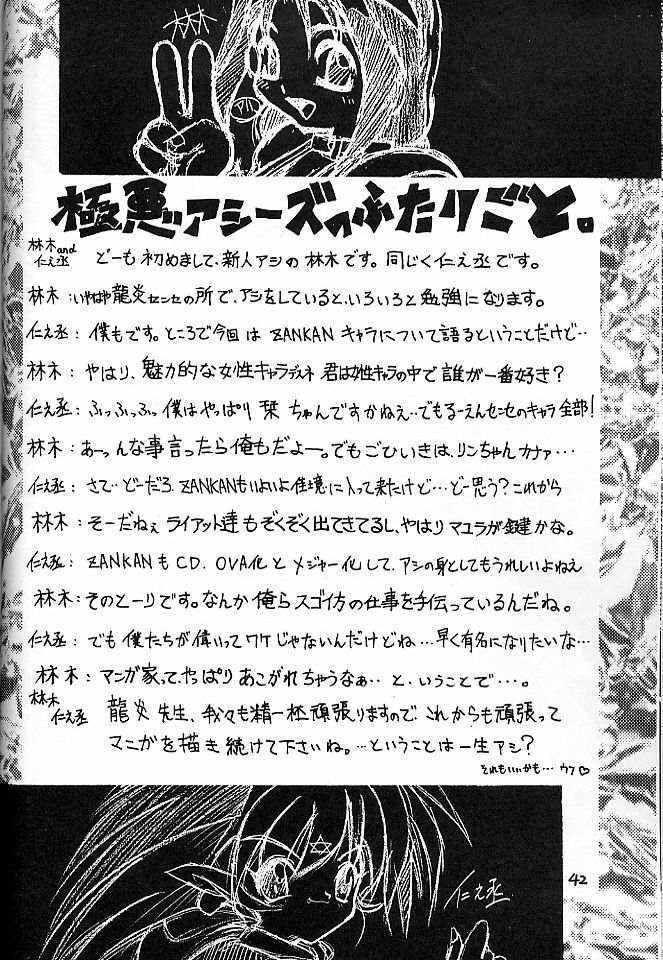 林木
極悪アシーズのふたりごと。
林木and仁え丞 どーも初めまして、新人アシの林木です。同じく仁え丞です。
林木:いやはや龍炎センセの所で、アシをしていると、いろいろと勉強になります。
仁え丞:僕もです。ところで今回はZANKANキャラについて語るということだけど…
林木:やはり、魅力的な女性キャラデスネ 君は女性キャラの中で誰が一番好き?
仁え丞:ふっふっふっ僕はやっぱり 栞 ちゃんですかねぇ…でもるーえんセンセのキャラ全部!
林木:あーっんな事言ったら俺もだよー。でもごひいきは、リンちゃんカナァ…
仁え丞:さて…どーだろ、ZANKANもいよいよ佳境に入って来たけど…どー思う?これから
林木:そーだねぇ ライアット達もぞくぞく出てきてるし、やはりマユラが鍵かな。
仁え丞:ZANKANもCD、OVA化とメジャー化して、アシの身としてもうれしいよねえ
林木:そのとーりです。なんか俺らスゴイ方の仕事を手伝っているんだね。
仁え丞:でも僕たちが偉いってワケじゃないんだけどね…早く有名になりたいな…
林木:マンガ家って、やっぱりあこがれちゃうなぁ… と、いうことで…。
林木 仁え丞 龍炎先生、我々も精一杯頑張りますので、これからも頑張って
マンガを描き続けて下さいね。…ということは一生アシ?
それもいいかも… ウフ♡
仁え丞
42